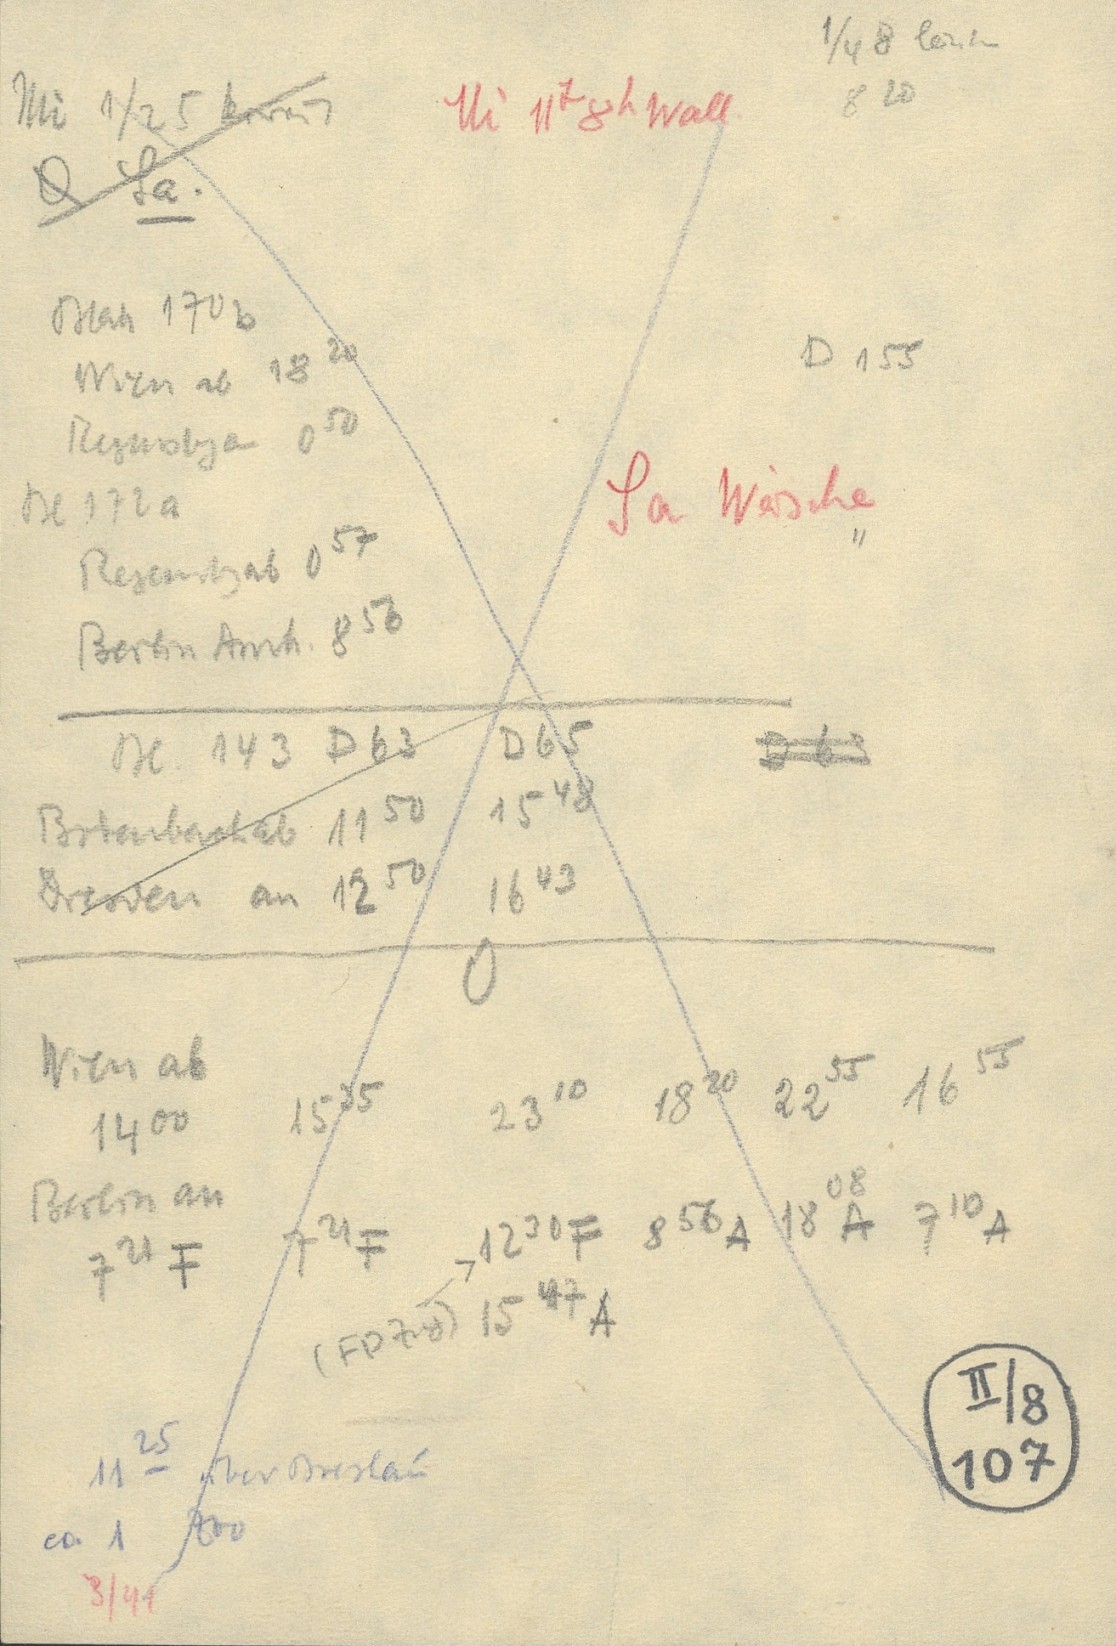 1/4 8
8 20
Mi 1/2 5
Mi 11 Wall
Sa.
170 b
D 155
Wien ab 18 20
0 50
Sa Wäsche
"
172 a
ab 0 57
Berlin Anh. 8 56
143 D 63 D 65 D 63
ab 11 50 15 48
Dresden an 12 50 16 43
0
Wien ab
14 00 15 35 23 10 18 20 22 55 16 55
Berlin an
7 21 F 7 21 F 12 30 F 8 56 A 18 08 A 7 10 A
15 47 A
(FD
11 25 über Breslau
ca. 1
3/41
II/8
107